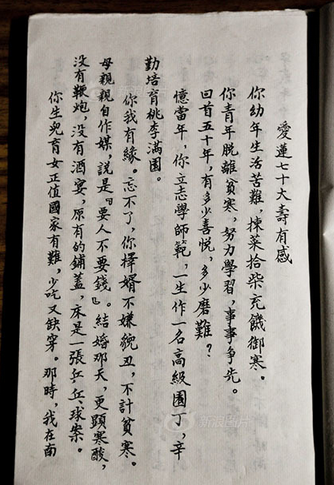 愛蓮七十大壽有感
你幼年生活苦難，揀菜拾柴充饑御寒。
你青年脫離貧寒，努力學習，事事争先。
回首五十年，有多少喜悦，多少磨難？
憶當年，你立志學師範，一生作一名高級園丁，辛
勤培育桃李满園。
你我有緣。忘不了，你擇婿不嫌貌丑，不計貧寒。
母親親自作媒，説是『要人不要錢』。結婚那天，更顯寒酸，
没有鞭炮，没有酒宴，原有的鋪蓋，床是一張乒乓球案。
你生兒育女正值國家有難，少吃又缺穿。那時，我在南